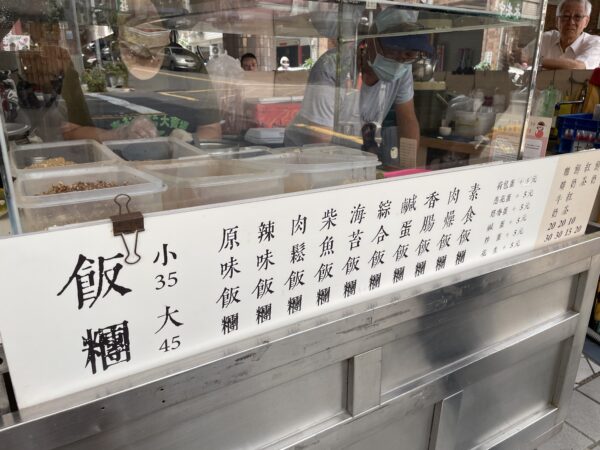 飯糰
小
35
大
45
原味飯糰
辣味飯糰
肉鬆飯糰
柴魚飯糰
海苔飯糰
綜合飯糰
鹹蛋飯糰
香腸飯糰
肉燥飯糰
素食飯糰
荷包蛋+5元
蔥蛋+5元
鹹蛋+5元
奶茶
紅茶
20 20 10
30 30 15 20